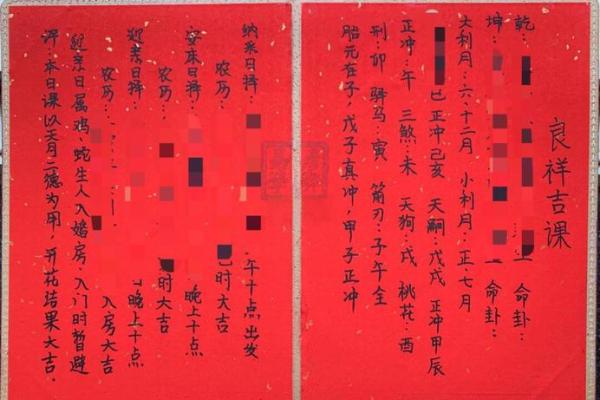 良祥吉课
乾：一命卦：
坤：一命卦：
大利月：六、十二月 小利月：正、七月
巳 正冲己亥 天嗣：戊戌 正冲甲辰
正冲：午 三煞：未 天狗：戌 桃花：酉
刑：卯 驿马：寅 箭刃：子午全
胎元在子，戊子真冲，甲子正冲
纳采日择：午十点出发
农历：时大吉
安床日择：晚上十点
农历：时大吉
迎亲日择：晚上十点
农历：入房大吉
迎亲日属鸡、蛇生人入婚房、入门时暂避
评：本日课以天月二德为用，开花结果大吉.